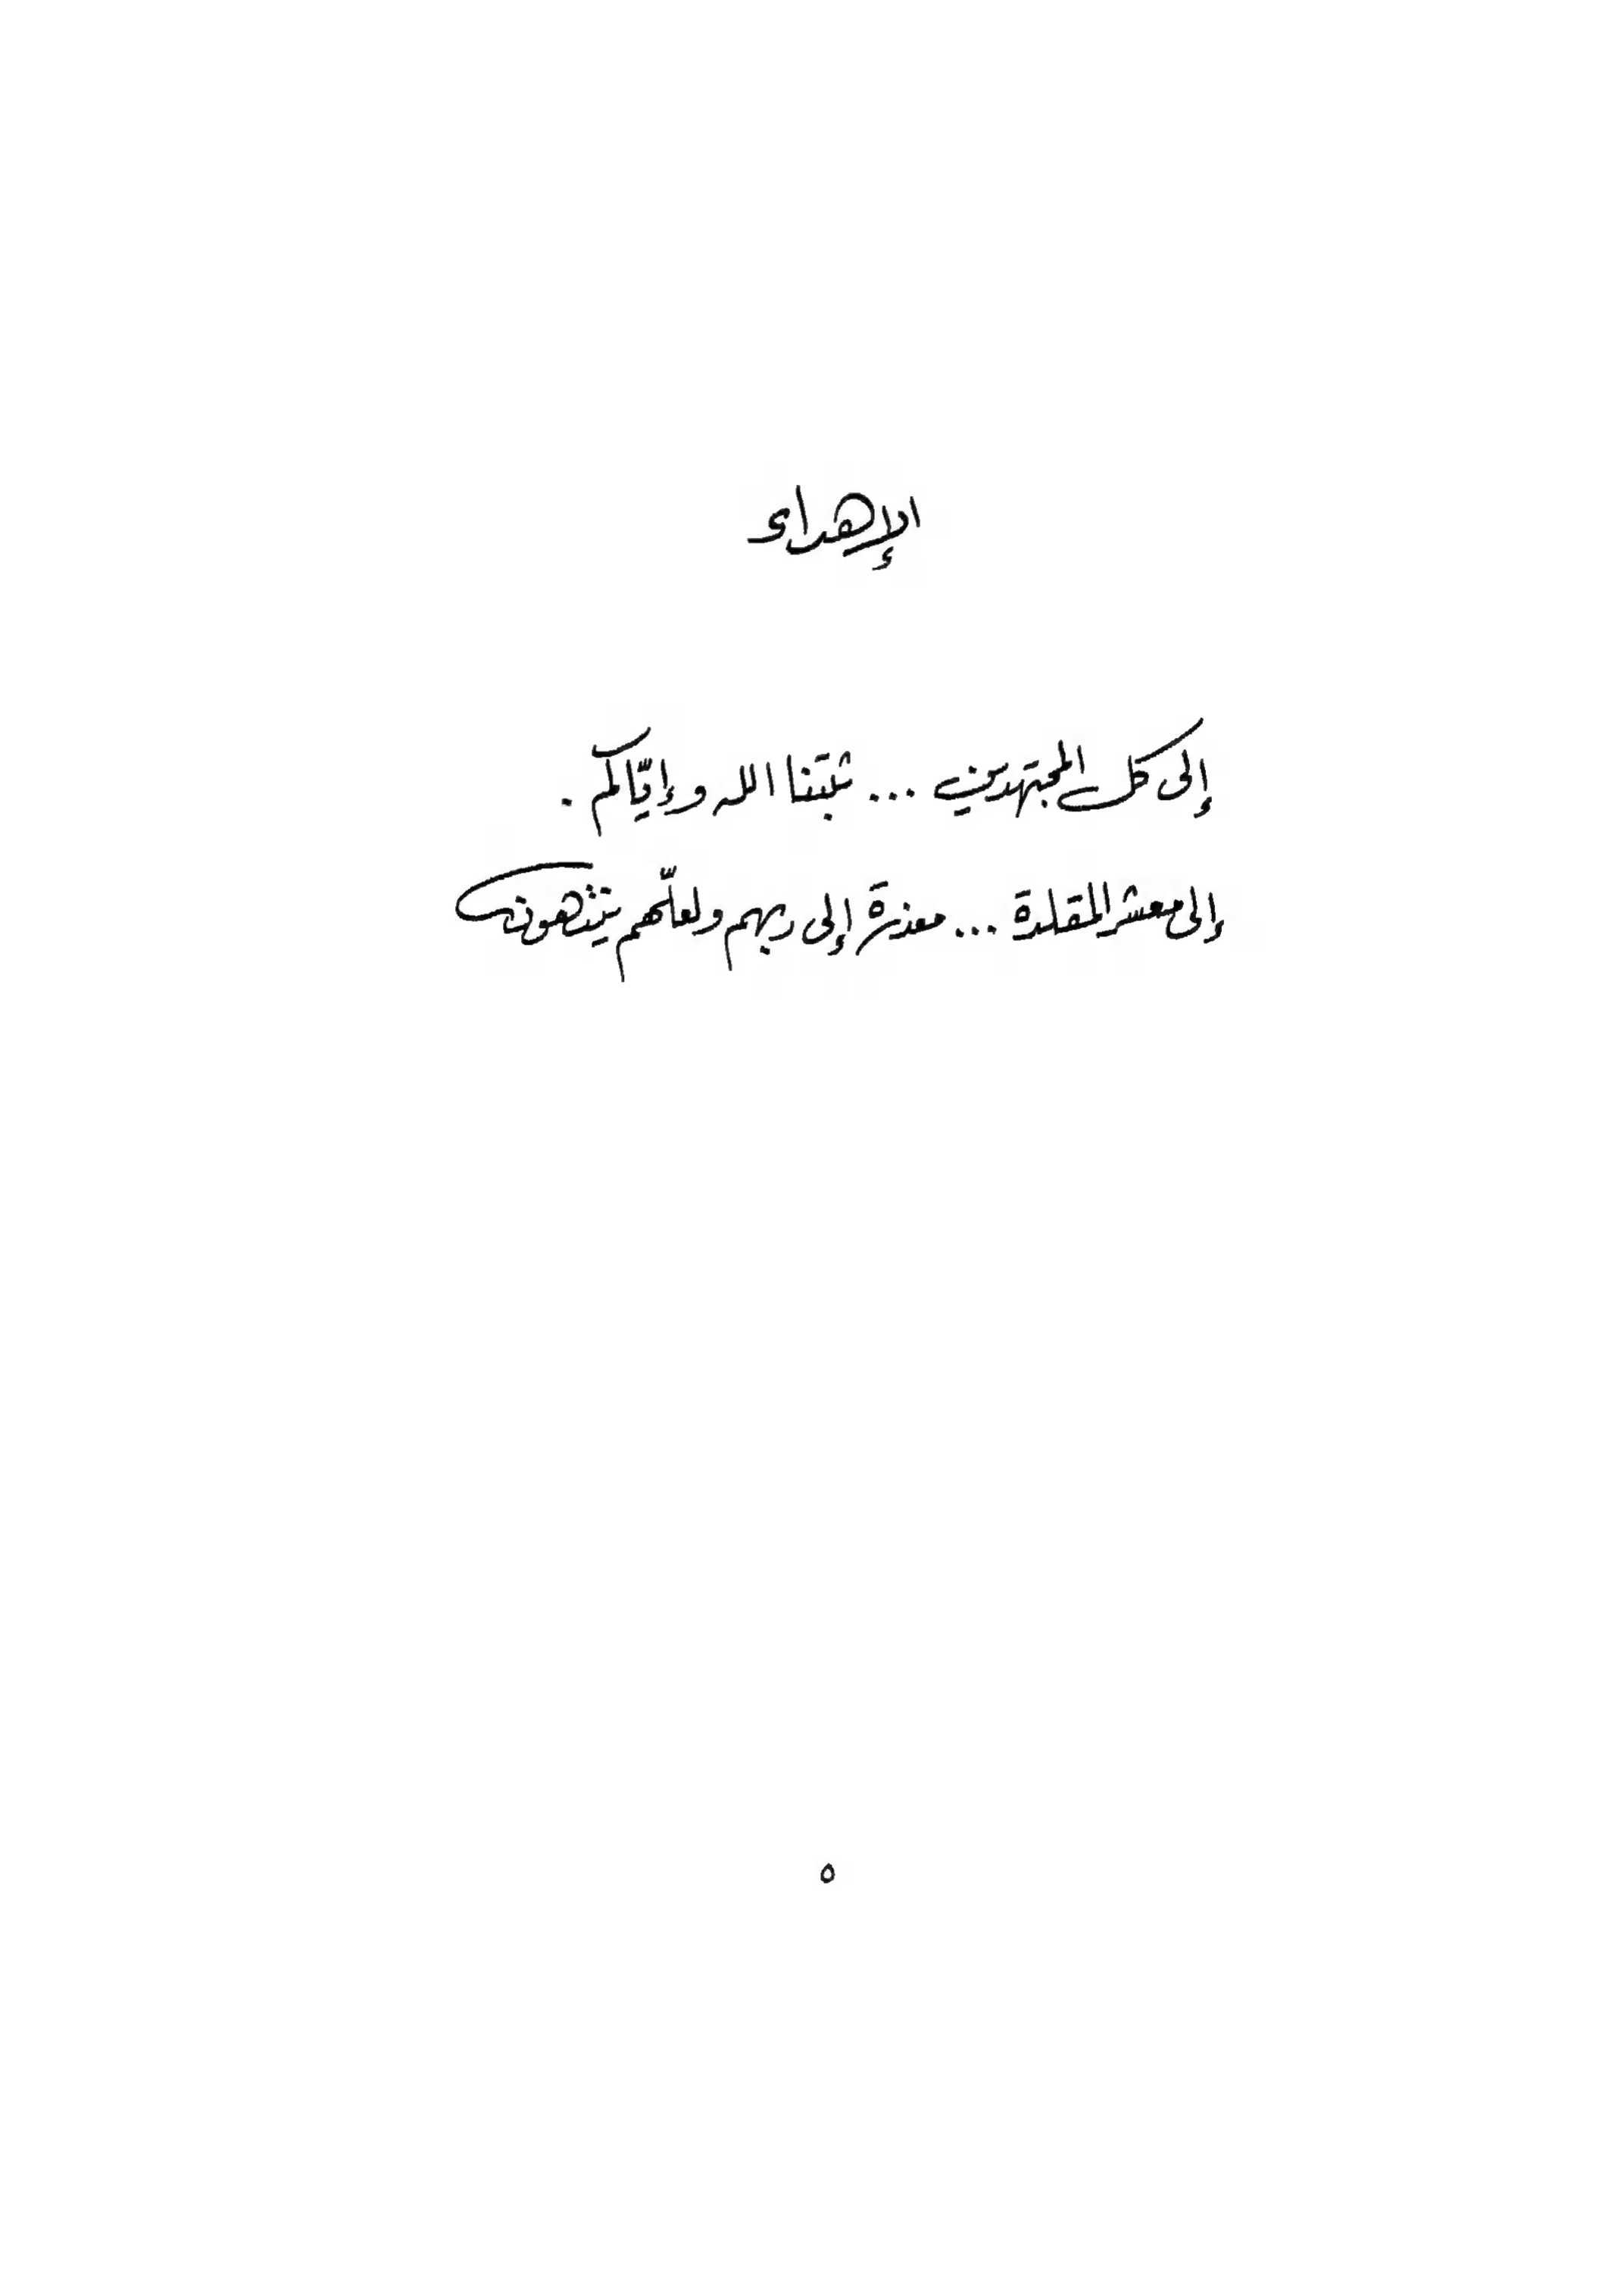 الإهداء
إلى كل المجتهدين ... ثبتنا الله وإيّاكم .
إلى معشر المقلدة ... معذرة إلى ربهم ولعلّهم ينتهون
٥